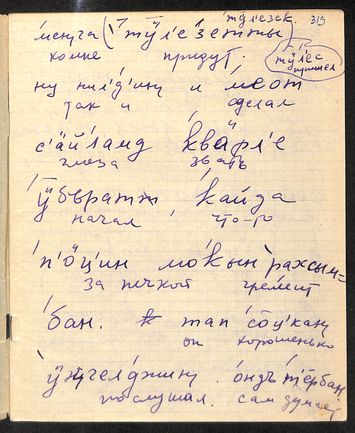 тӱлезек. 319
менуга (тӱл'е́зетты)
ко мне придут.
тӱл'ес
пришел
ну нил'д'ину и меот
так и сделал
с'ӓйламд квӓрл'е
глаза звать
ӱбъратт, кайда
начал, что-то
п'ӧц'ин мокын рахсым=
за печкой гремит
бан. тап сӧц'кан
он хорошенько
ӱнчелджину. ондъ тӓрбан
послушал. сам думает